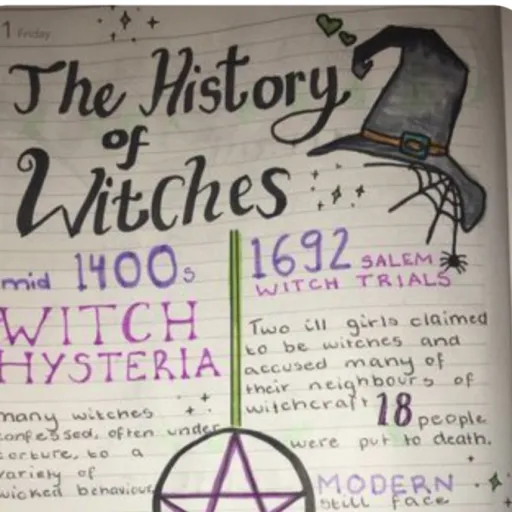 1 Friday
The History
of
Witches
mid 1400s
WITCH
HYSTERIA
many witches
confessed, often under
torture, to a
variety of
wicked behaviour
1692 SALEM
WITCH TRIALS
Two ill girls claimed
to be witches and
accused many of
their neighbours of
witchcraft 18 people
were put to death.
MODERN
still face